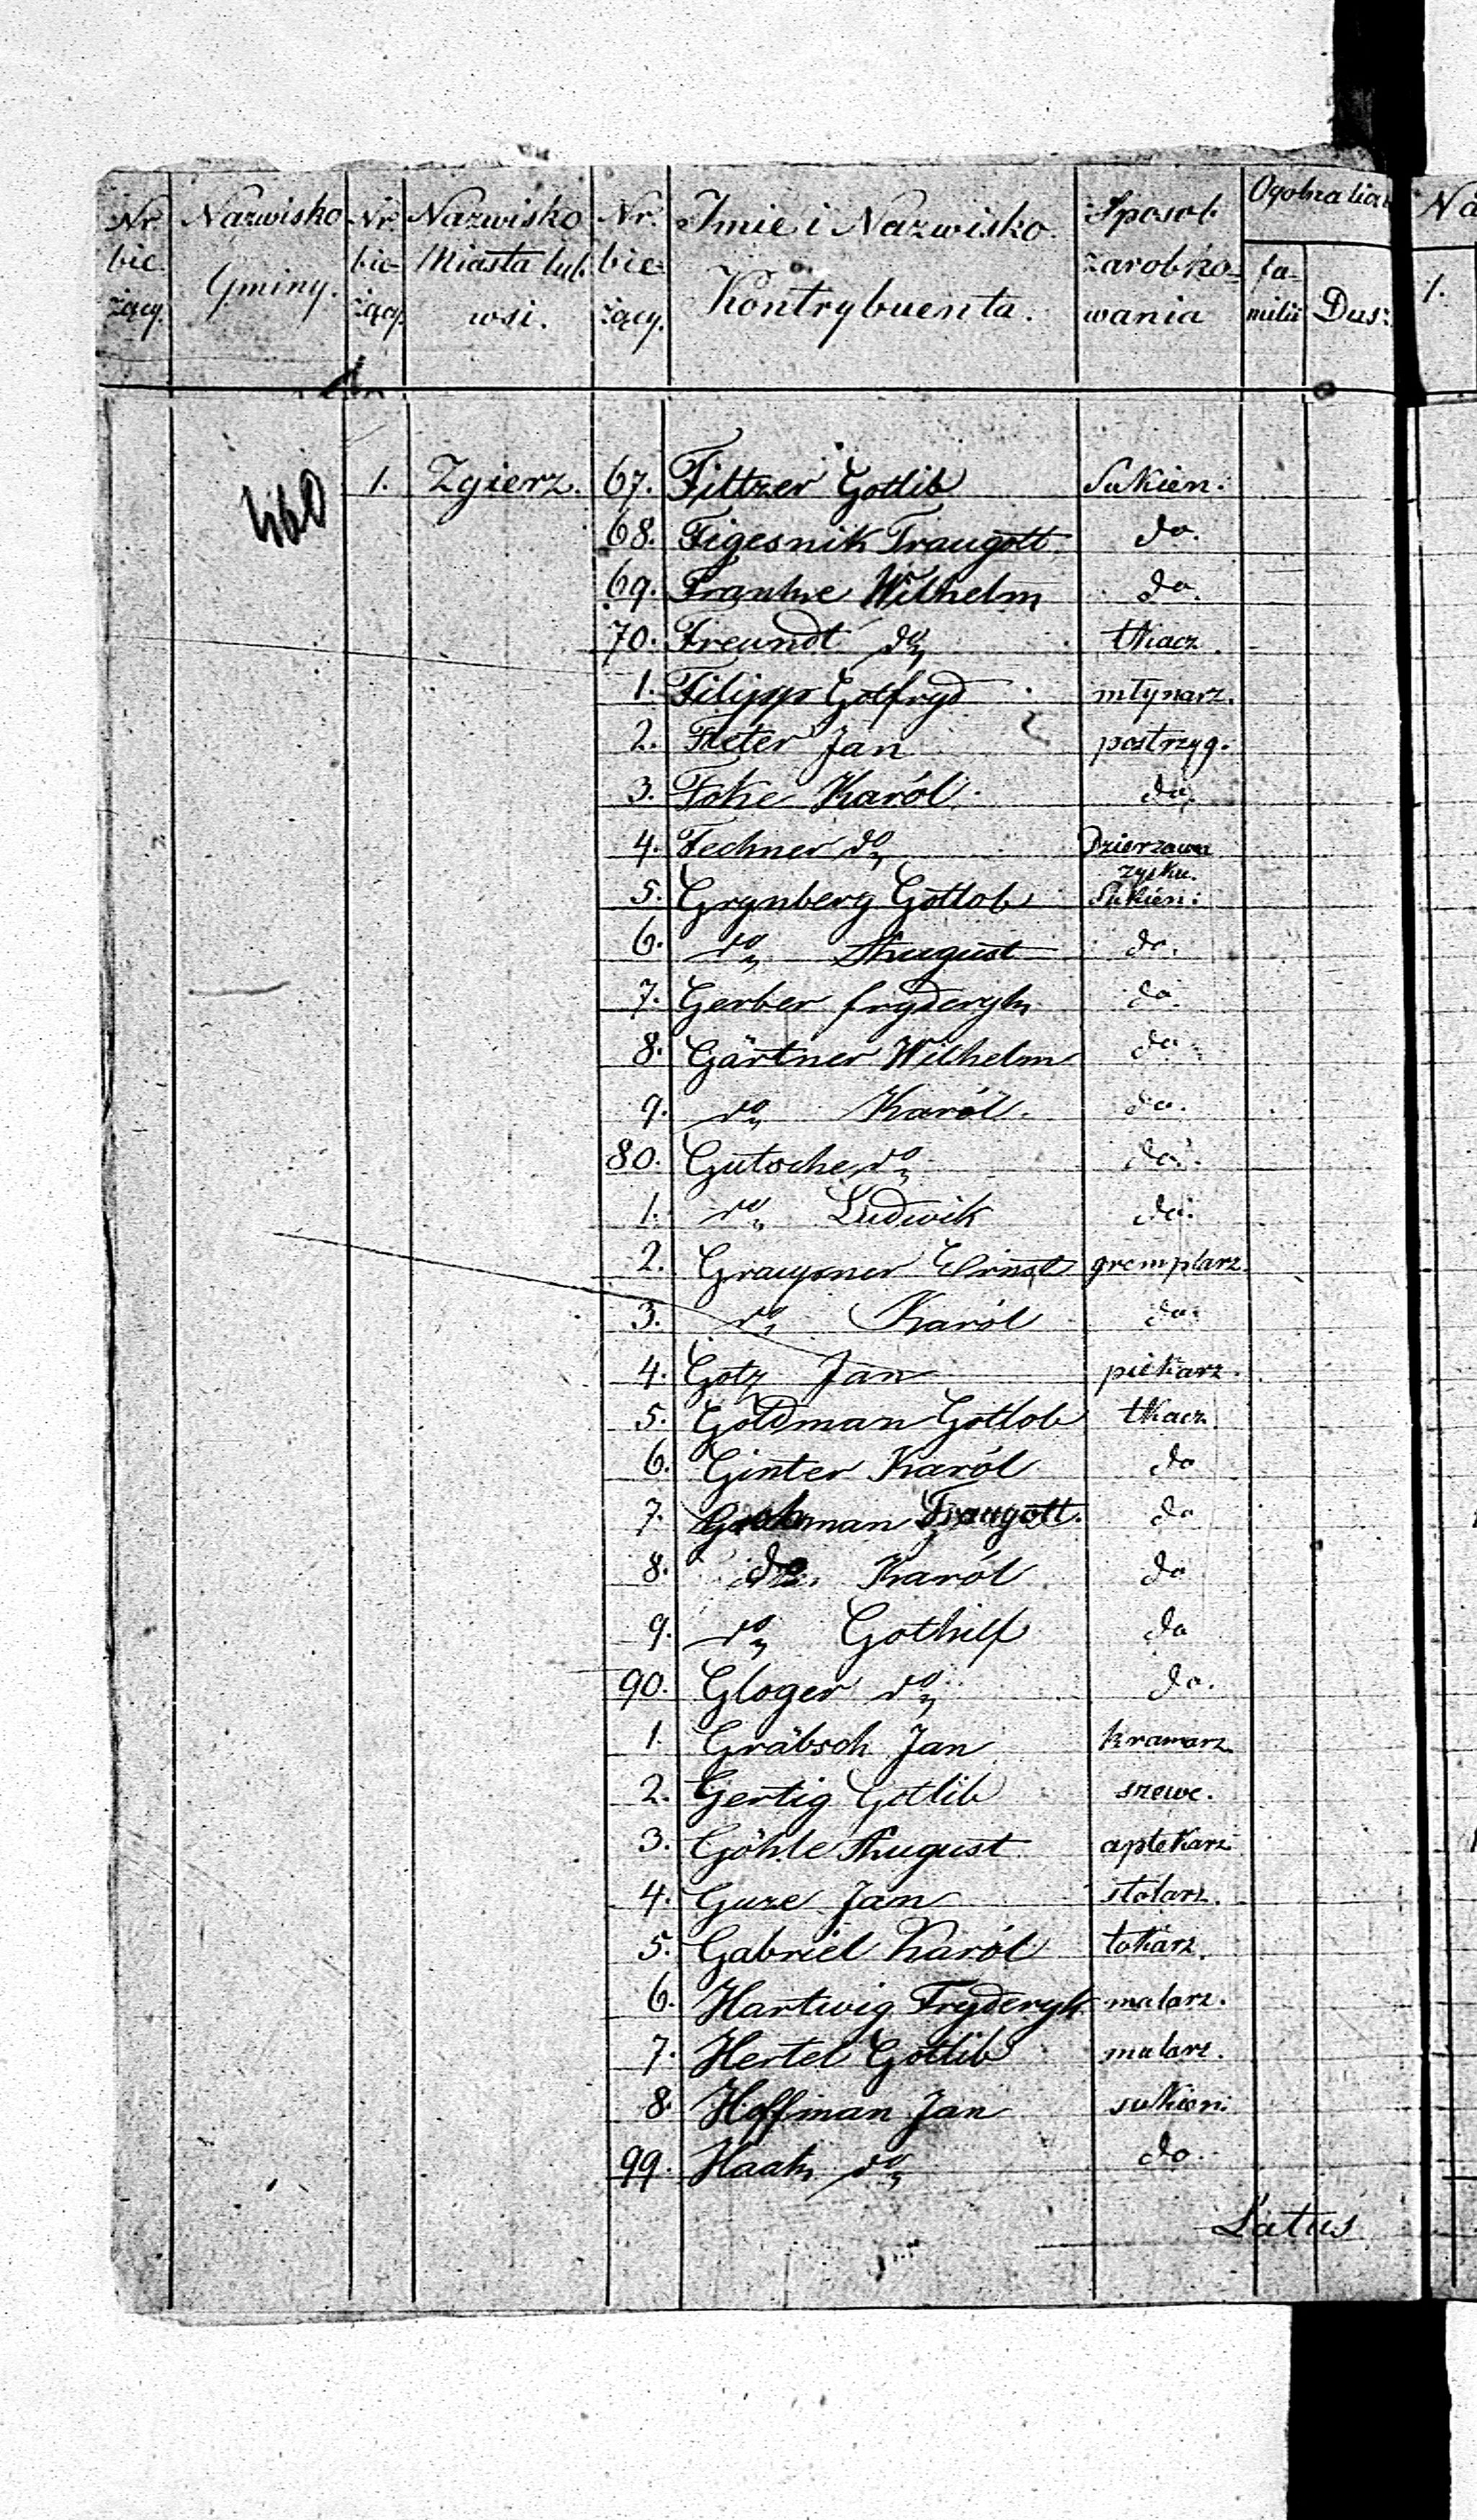 Nr. bie- żący.
Nazwisko Gminy.
Nr. bie- żący.
Nazwisko Miasta lub wsi.
Nr. bie- żący.
Imie i Nazwisko Kontrybuenta.
Sposob zarobko- wania
Ogolna licz
fa- milii
Dusz
1. Zgierz. 67. Filtzer Gotlib Sukien:
68. Figesnik Traugott do.
69. Franke Wilhelm do.
70. Freundt do tkacz
1. Filipp Gotfryd młynarz.
2. Fleter Jan postrzyg.
3. Foke Karól do.
4. Fechner do Dzierzawca
zysku.
5. Grynberg Gottlob Sukien:
6. do August do.
7. Gerber fryderyk do
8. Gärtner Wilhelm do
9. do Karól. do.
80. Gutsche do do.
1. do Ludwik do.
2. Ernst gremplarz.
3. do Karól do.
4. Gotz Jan piekarz.
5. Goldman Gotlob tkacz
6. Ginter Karól do
7. Traugott. do
8. do Karól do
9. do Gothilf do
90. Gloger do do.
1. Gräbsch Jan kramarz
2. Gertig Gotlib szewc.
3. Göhle August aptekarz
4. Guze Jan stolarz.
5. Gabriel Karól tokarz.
6. Hartwig Fryderyk malarz.
7. Hertel Gotlib mularz.
8 Hoffman Jan sukien:
99. Haak do do.
Latus